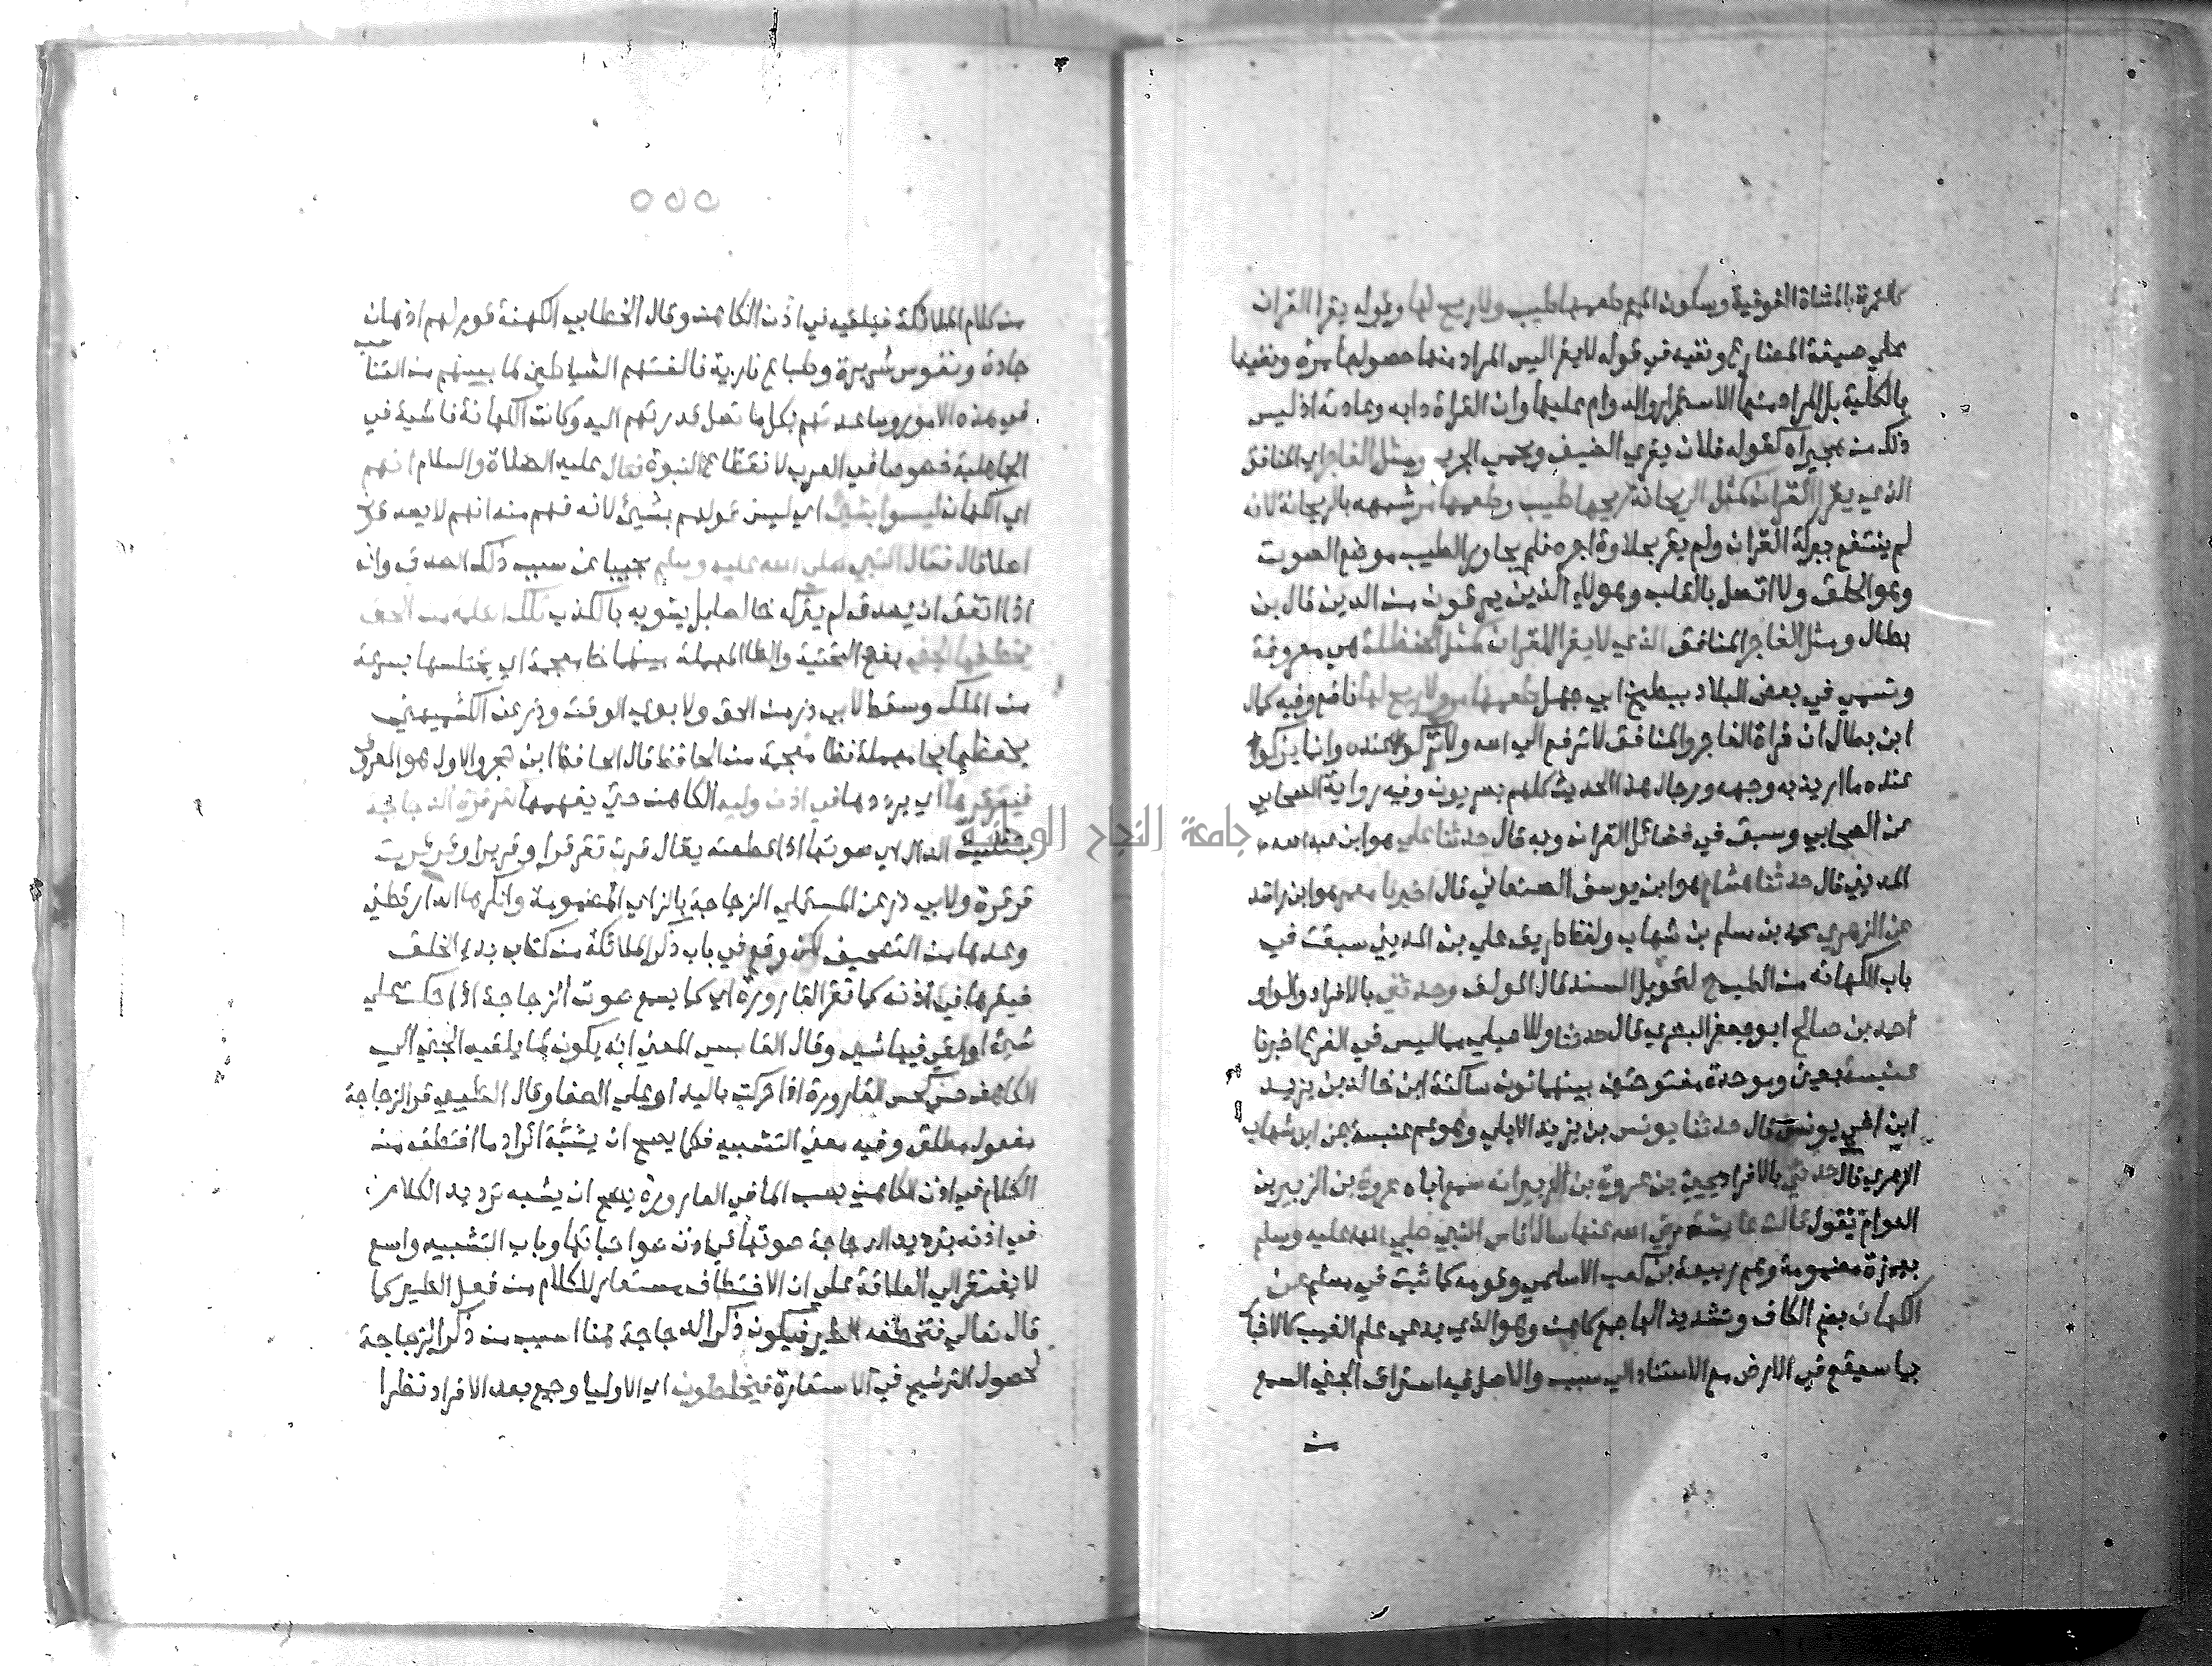 كالتمرة بالمثناة الفوقية وسكون الميم طعمها طيب ولا ريح لها وقوله يقرا القران
على صيغة المضارع ونفيه في قوله لا يقرا ليس المراد منها حصولها مرة ونفيها
بالكلية بل المراد منهما الاستمرار والدوام عليها وان القراة دابه وعادته اذ ليس
ذلك من هجيراه كقوله فلان يقري الضيف ويحمي الحريم ومثل الفاجر اي المنافق
الذي يقرا القران كمثل الريحانة ريحها طيب وطعمها مر شبهه بالريحانة لانه
لم ينتفع ببركة القران ولم يفز بحلاوة اجره فلم يجاوز الطيب موضع الصوت
وهو الحلق ولا اتصل بالقلب وهولاء الذين يمرقون من الدين قال بن
بطال ومثل الفاجر المنافق الذي لا يقرا القران كمثل الحنظلة هي معروفة
وتسمى في بعض البلاد ببطيخ ابي جهل طعمها مر ولا ريح لها نافع وفيه كمال
ابن بطال ان قراة الفاجر والمنافق لا ترفع الى الله ولا تزكوا عنده وانما يزكوا
عنده ما اريد به وجهه ورجال هذا الحديث كلهم بصريون وفيه رواية الصحابي
عن الصحابي وسبق في فضائل القران وبه قال حدثنا علي هو ابن عبد الله
المديني قال حدثنا هشام هو ابن يوسف الصنعاني قال اخبرنا معمر هو ابن راشد
عن الزهري محمد بن مسلم بن شهاب ولفظ طريق علي بن المديني سبقت في
باب الكهانه من الطب ح لتحويل السند قال المولف وحدثني بالافراد والواو
احمد بن صالح ابو جعفر البصري قال حدثنا وللاصيلي مما ليس في الفرع اخبرنا
عنبسة بعين وموحدة مفتوحتين بينهما نون ساكنة ابن خالد بن يزيد
ابن اخي يونس قال حدثنا يونس بن يزيد الايلي وهو عم عنبسة عن ابن شهاب
الزهري قال حدثني بالافراد يحيى بن عروة بن الزبير انه سمع اباه عروة بن الزبير بن
العوام يقول قالت عايشة رضي الله عنها سال اناس النبي صلى الله عليه وسلم
بهمزة مضمومة وهم ربيعة بن كعب الاسلمي وقومه كما ثبت في مسلم عن
الكهان بضم الكاف وتشديد الها جمع كاهن وهو الذي يدعي علم الغيب كالاخبار
بما سيقع في الارض مع الاستناد الى سبب والاصل فيه استراق الجني السمع
من
من كلام الملائكة فيلقيه في اذن الكاهن وقال الخطابي الكهنة قوم لهم اذهان
حادة ونفوس شريرة وطباع نارية فالفتهم الشياطين لما بينهم من التناسب
في هذه الامور وساعدتهم بكل ما تصل قدرتهم اليه وكانت الكهانة فاشية في
الجاهلية خصوصا في العرب لانقطاع النبوة فقال عليه الصلاة والسلام انهم
اي الكهان ليسوا بشيئ اي ليس قولهم بشيئ لانه فهم منه انهم لا يصدقون
اصلا قال فقال النبي صلى الله عليه وسلم مجيبا عن سبب ذلك الصدق وانه
اذا اتفق ان يصدق لم يتركه خالصا بل يشوبه بالكذب تلك الكلمة من الحق
يخطفها الجني بفتح التحتية والطا المهملة بينهما خا معجمة اي يختلسها بسرعة
من الملك وسقط لابي ذر من الحق ولابوي الوقت وذر عن الكشميهني
يحفظها بحا مهملة فظا معجمة من الحفظ قال الحافظ ابن حجر والاول هو المعروف
فيقرقرها اي يرددها في اذن وليه الكاهن حتى يفهمها كقرقرة الدجاجة
بتثليث الدال اي صوتها اذا قطعته يقال قرت تقر قرا وقريرا وقرقرت
قرقرة ولابي ذر عن المستملي الزجاجة بالزاي المضمومة وانكرها الدارقطني
وعدها من التصحيف لكن وقع في باب ذكر الملائكة من كتاب بدء الخلق
فيقرها في اذنه كما تقر القارورة اي كما يسمع صوت الزجاجة اذا حكت على
شيئ او القي فيها شيئ وقال القابسي المعنى انه يكون لما يلقيه الجني الى
الكاهن حس كحس القارورة اذا حركت باليد او على الصفا وقال الطيبي قر الزجاجة
مفعول مطلق وفيه معنى التشبيه فكما يصح ان يشبه ايراد ما اختطف من
الكلام في اذن الكاهن بصب الما في القارورة يصح ان يشبه ترديد الكلام
في اذنه بترديد الدجاجة صوتها في اذن صواحباتها وباب التشبيه واسع
لا يفتقر الى العلاقة على ان الاختطاف مستعار للكلام من فعل الطير كما
قال تعالى فتخطفه الطير فيكون ذكر الدجاجة هنا انسب من ذكر الزجاجة
لحصول الترشيح في الاستعارة فيخلطون اي الاوليا وجمع بعد الافراد نظرا
جامعة النجاح الوطنية